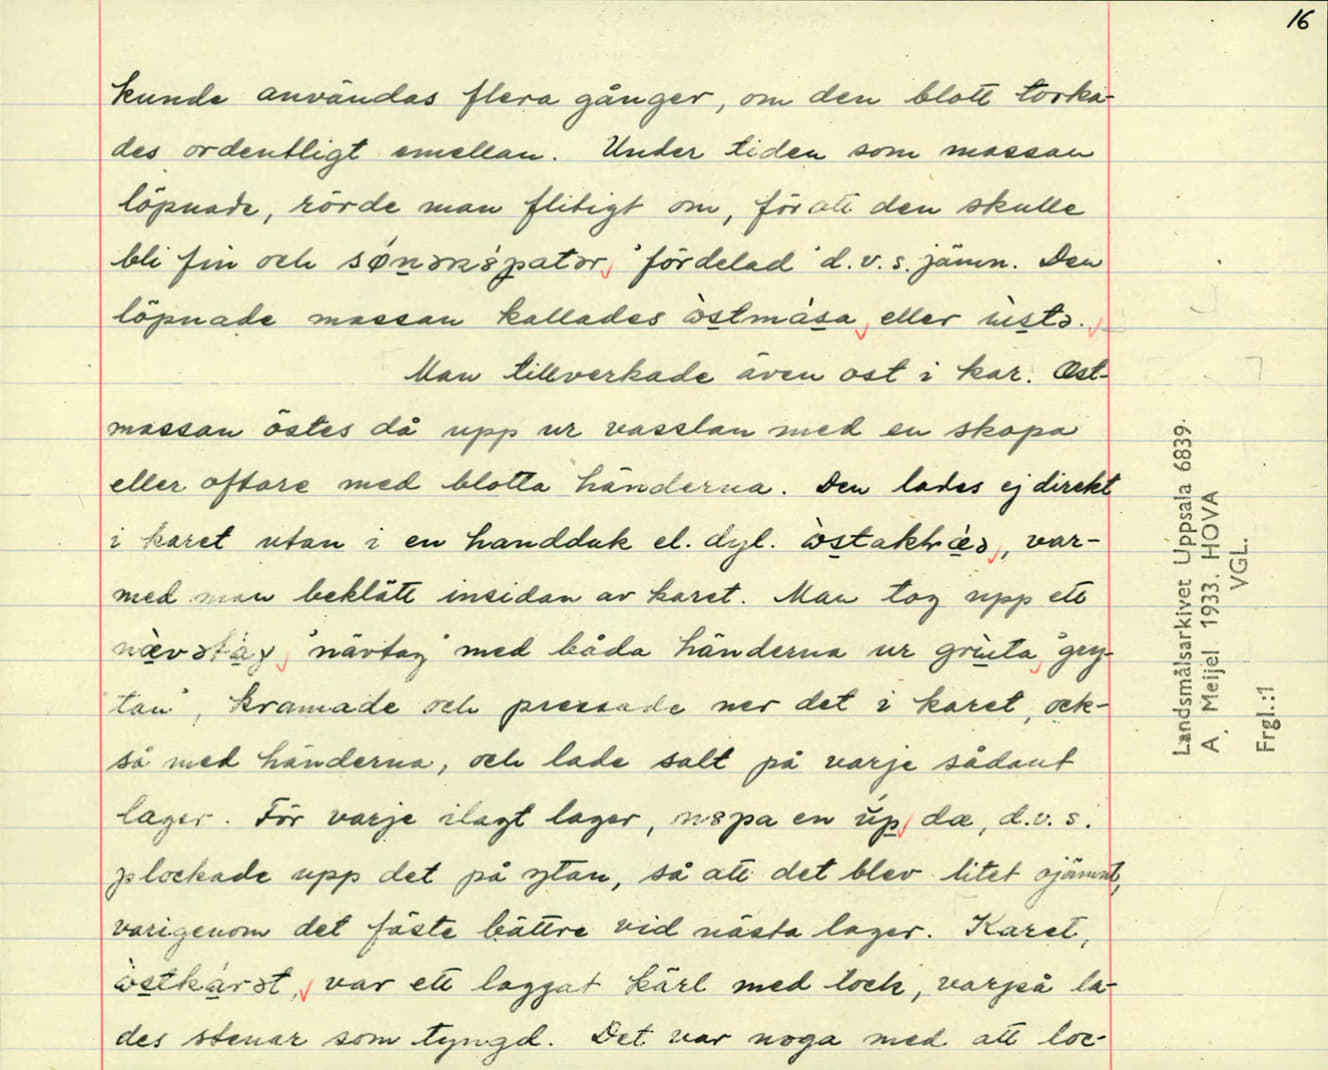 16
kunde användas flera gånger, om den blott torka-
des ordentligt emellan. Under tiden som massan
löpnade, rörde man flitigt om, för att den skulle
bli fin och "fördelad" d.v.s. jämn. Den
löpnade massan kallades òstmása, eller ùstə.
Man tillverkade även ost i kar. Ost-
massan östes då upp ur vasslan med en skopa
eller oftare med blotta händerna. Den lades ej direkt
i karet utan i en handduk el. dyl. var-
med man beklätt insidan av karet. Man tog upp ett
"nävtag" med båda händerna ur "gry-
tan", kramade och pressade ner det i karet, ock-
så med händerna, och lade salt på varje sådant
lager. För varje ilagt lager, en úp dæ, d.v.s.
plockade upp det på ytan, så att det blev litet ojämnt,
varigenom det fäste bättre vid nästa lager. Karet,
òstkárət, var ett laggat kärl med lock, varpå la-
des stenar som tyngd. Det var noga med att loc-
Landsmålsarkivet Uppsala 6839.
A. Meijel 1933. HOVA
VGL.
Frgl.:1